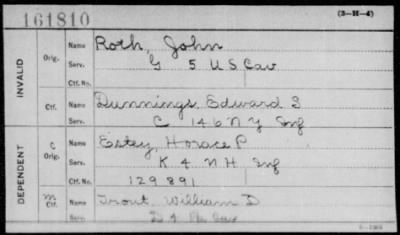 161810
(3-H-4)
INVALID
Orig. Name Roth, John
Serv. G 5 U S Cav
Ctf. No.
Ctf. Name Dunnings, Edward S
Serv. C 146 N Y Inf
DEPENDENT
C Orig. Name Estey, Horace P
Serv. K 4 N H Inf
Ctf. No. 129891
M Ctf. Name Trout William D
Serv. D 4 Pa Cav